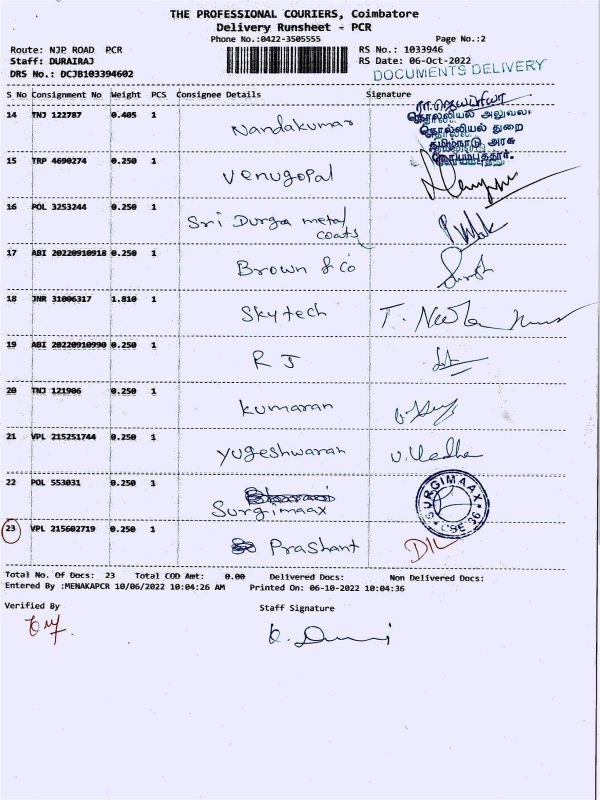 THE PROFESSIONAL COURIERS, Coimbatore
Delivery Runsheet - PCR
Phone No.:0422-3505555
Page No.:2
Route: NJP ROAD PCR
RS No.: 1033946
Staff: DURAIRAJ
RS Date: 06-Oct-2022
DRS No.: DCJB103394602
DOCUMENTS DELIVERY
S No Consignment No Weight PCS Consignee Details Signature
14 TNJ 122787 0.405 1 Nandakumar
தொல்லியல் அலுவலர்
தொல்லியல் துறை
தமிழ்நாடு அரசு
கோயம்புத்தூர்.
15 TRP 4690274 0.250 1 Venugopal
16 POL 3253244 0.250 1 Sri Durga metal
coats
17 ABI 20220910918 0.250 1 Brown & co
18 JNR 31006317 1.810 1 Skytech
19 ABI 20220910990 0.250 1 R J
20 TNJ 121906 0.250 1 Kumaran
21 VPL 215251744 0.250 1 Yugeshwaran
22 POL 553031 0.250 1 Surgimaax
SURGIMAAX CBE 36
23 VPL 215602719 0.250 1 Prashant
Total No. Of Docs: 23 Total COD Amt: 0.00 Delivered Docs: Non Delivered Docs:
Entered By :MENAKAPCR 10/06/2022 10:04:26 AM Printed On: 06-10-2022 10:04:36
Verified By
Staff Signature